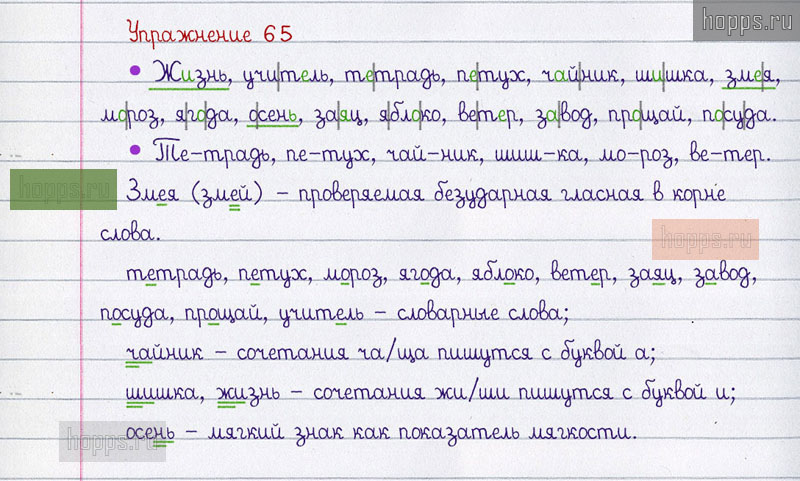 hopps.ru
Упражнение 65
• Жизнь, учи|тель, те|традь, пе|тух, чай|ник, ши|шка, зме|я,
мо|роз, я|го|да, о|сень, за|яц, я|бло|ко, ве|тер, за|вод, про|щай, по|су|да.
• Те-традь, пе-тух, чай-ник, шиш-ка, мо-роз, ве-тер.
hopps.ru
Змея (змей) – проверяемая безударная гласная в корне
слова.
hopps.ru
тетрадь, петух, мороз, ягода, яблоко, ветер, заяц, завод,
посуда, прощай, учитель – словарные слова;
чайник – сочетания ча/ща пишутся с буквой а;
шишка, жизнь – сочетания жи/ши пишутся с буквой и;
осень – мягкий знак как показатель мягкости.
hopps.ru